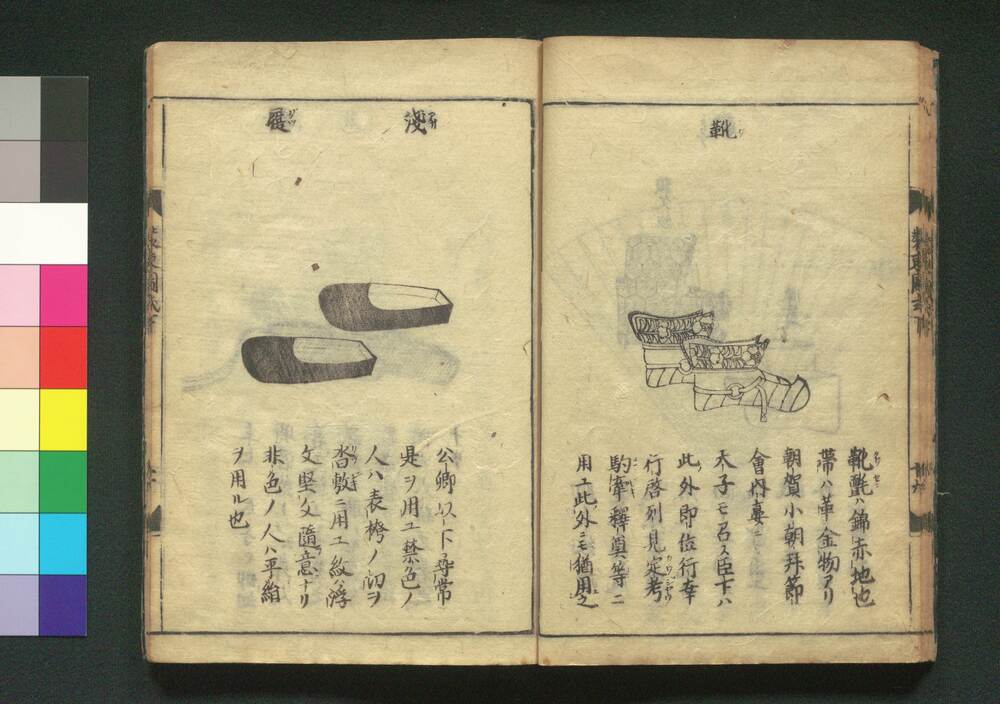 靴
靴氈ハ錦赤地也
帯ハ革金物アリ
朝賀小朝拜節
會内宴ニ
太子モ召ス臣下ハ
此外即位行幸
行啓列見定考
駒牽釋奠等ニ
用エ此外ニモ猶用之
淺履
公卿以下尋常
是ヲ用エ禁色ノ
人ハ表袴ノ切ヲ
沓敷ニ用エ紋浮
文堅文隨意ナリ
非色ノ人ハ平絹
ヲ用ル也